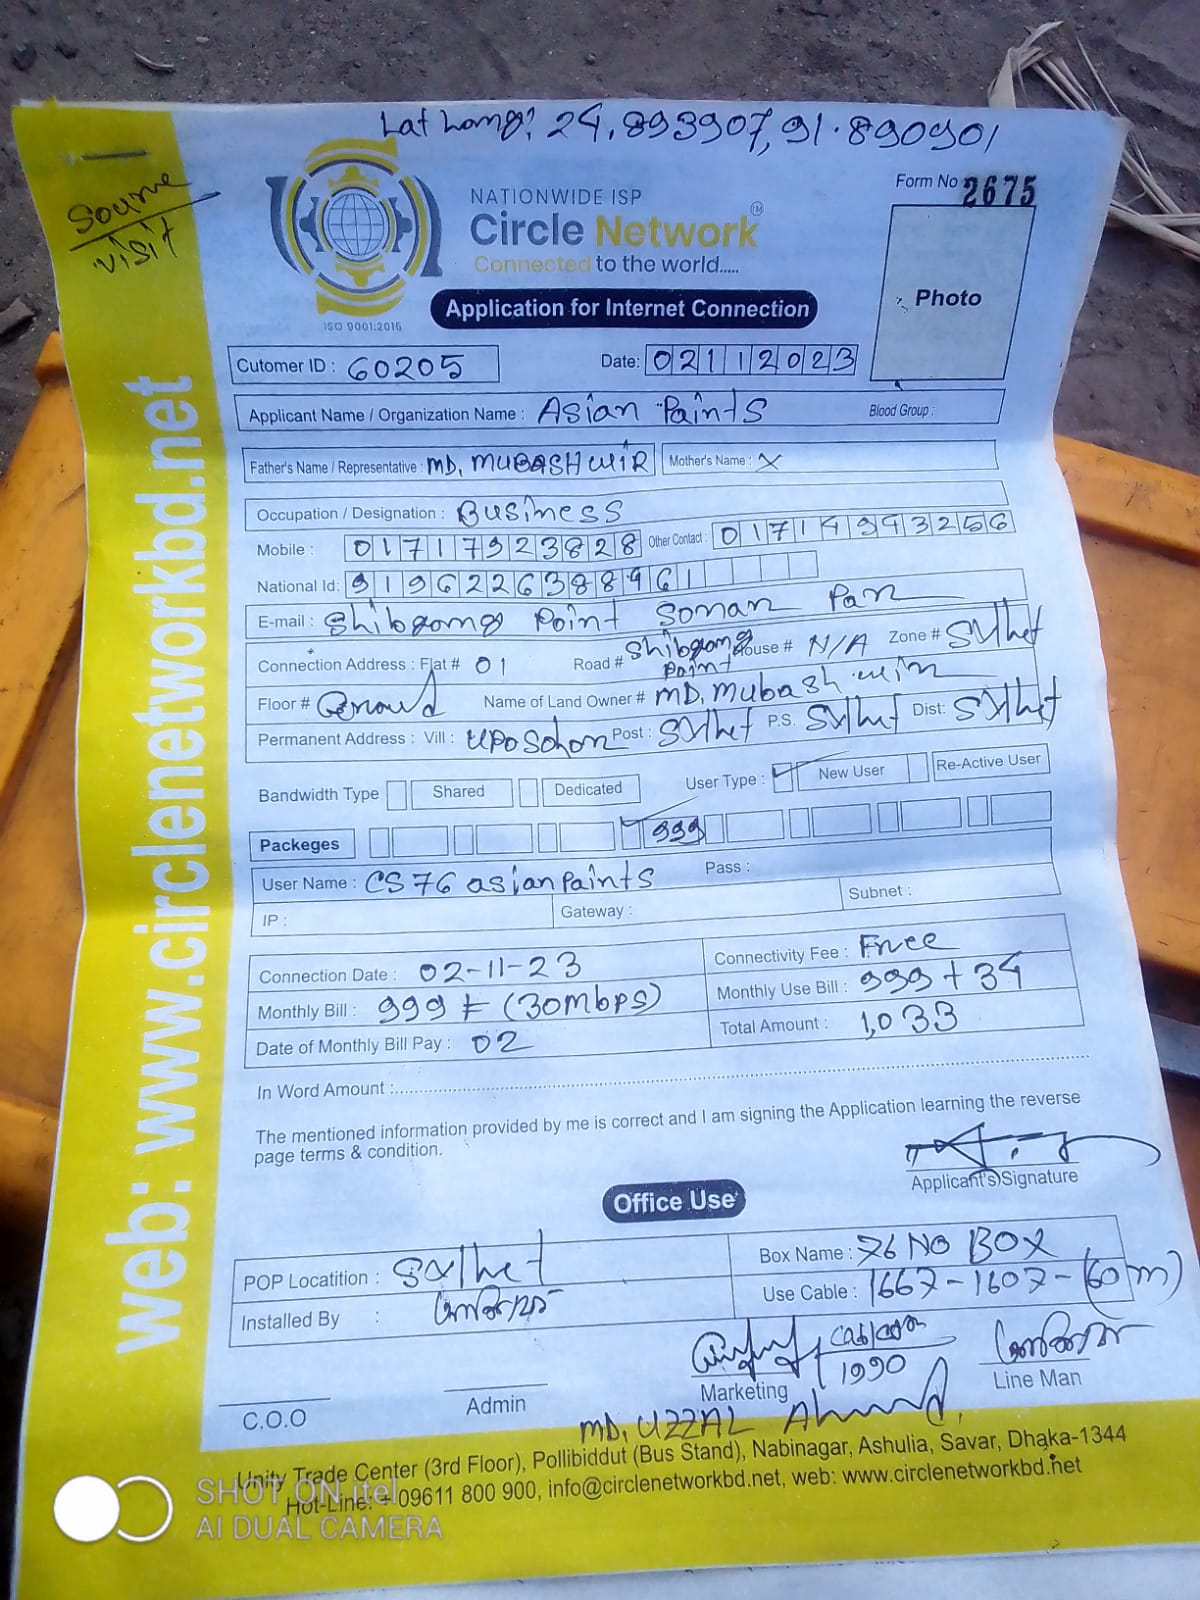 Lat Long: 24.893907, 91.890901
Source
visit
Form No 2675
NATIONWIDE ISP
Circle Network TM
Connected to the world.....
ISO 9001:2015
Photo
Application for Internet Connection
Cutomer ID : 60205 Date: 02112023
Applicant Name / Organization Name : Asian Paints Blood Group :
Father's Name / Representative : MD. MUBASHWIR Mother's Name : X
Occupation / Designation : Business
Mobile : 01717923828 Other Contact : 01714943256
National Id: 9196226388961
E-mail : Shibgong Point Sonar Par
Connection Address : Flat # 01 Road # Shibgong Point House # N/A Zone # Sylhet
Floor # Ground Name of Land Owner # MD. Mubashwir
Permanent Address : Vill : UPOSohon Post : Sylhet P.S. Sylhet Dist: Sylhet
Bandwidth Type Shared Dedicated User Type : New User Re-Active User
Packeges 999
User Name : CS76asianPaints Pass :
IP : Gateway : Subnet :
Connection Date : 02-11-23 Connectivity Fee : Free
Monthly Bill : 999 (30Mbps) Monthly Use Bill : 999 + 34
Date of Monthly Bill Pay : 02 Total Amount : 1,033
In Word Amount :
The mentioned information provided by me is correct and I am signing the Application learning the reverse
page terms & condition.
Applicant's Signature
Office Use
POP Locatition : Sylhet Box Name : 76 NO BOX
Installed By : Use Cable : 1667-1607-(60m)
1990
C.O.O Admin Marketing Line Man
MD. UZZAL Ahmed.
Unity Trade Center (3rd Floor), Pollibiddut (Bus Stand), Nabinagar, Ashulia, Savar, Dhaka-1344
Hot-Line: +09611 800 900, info@circlenetworkbd.net, web: www.circlenetworkbd.net
web: www.circlenetworkbd.net
SHOT ON itel
AI DUAL CAMERA